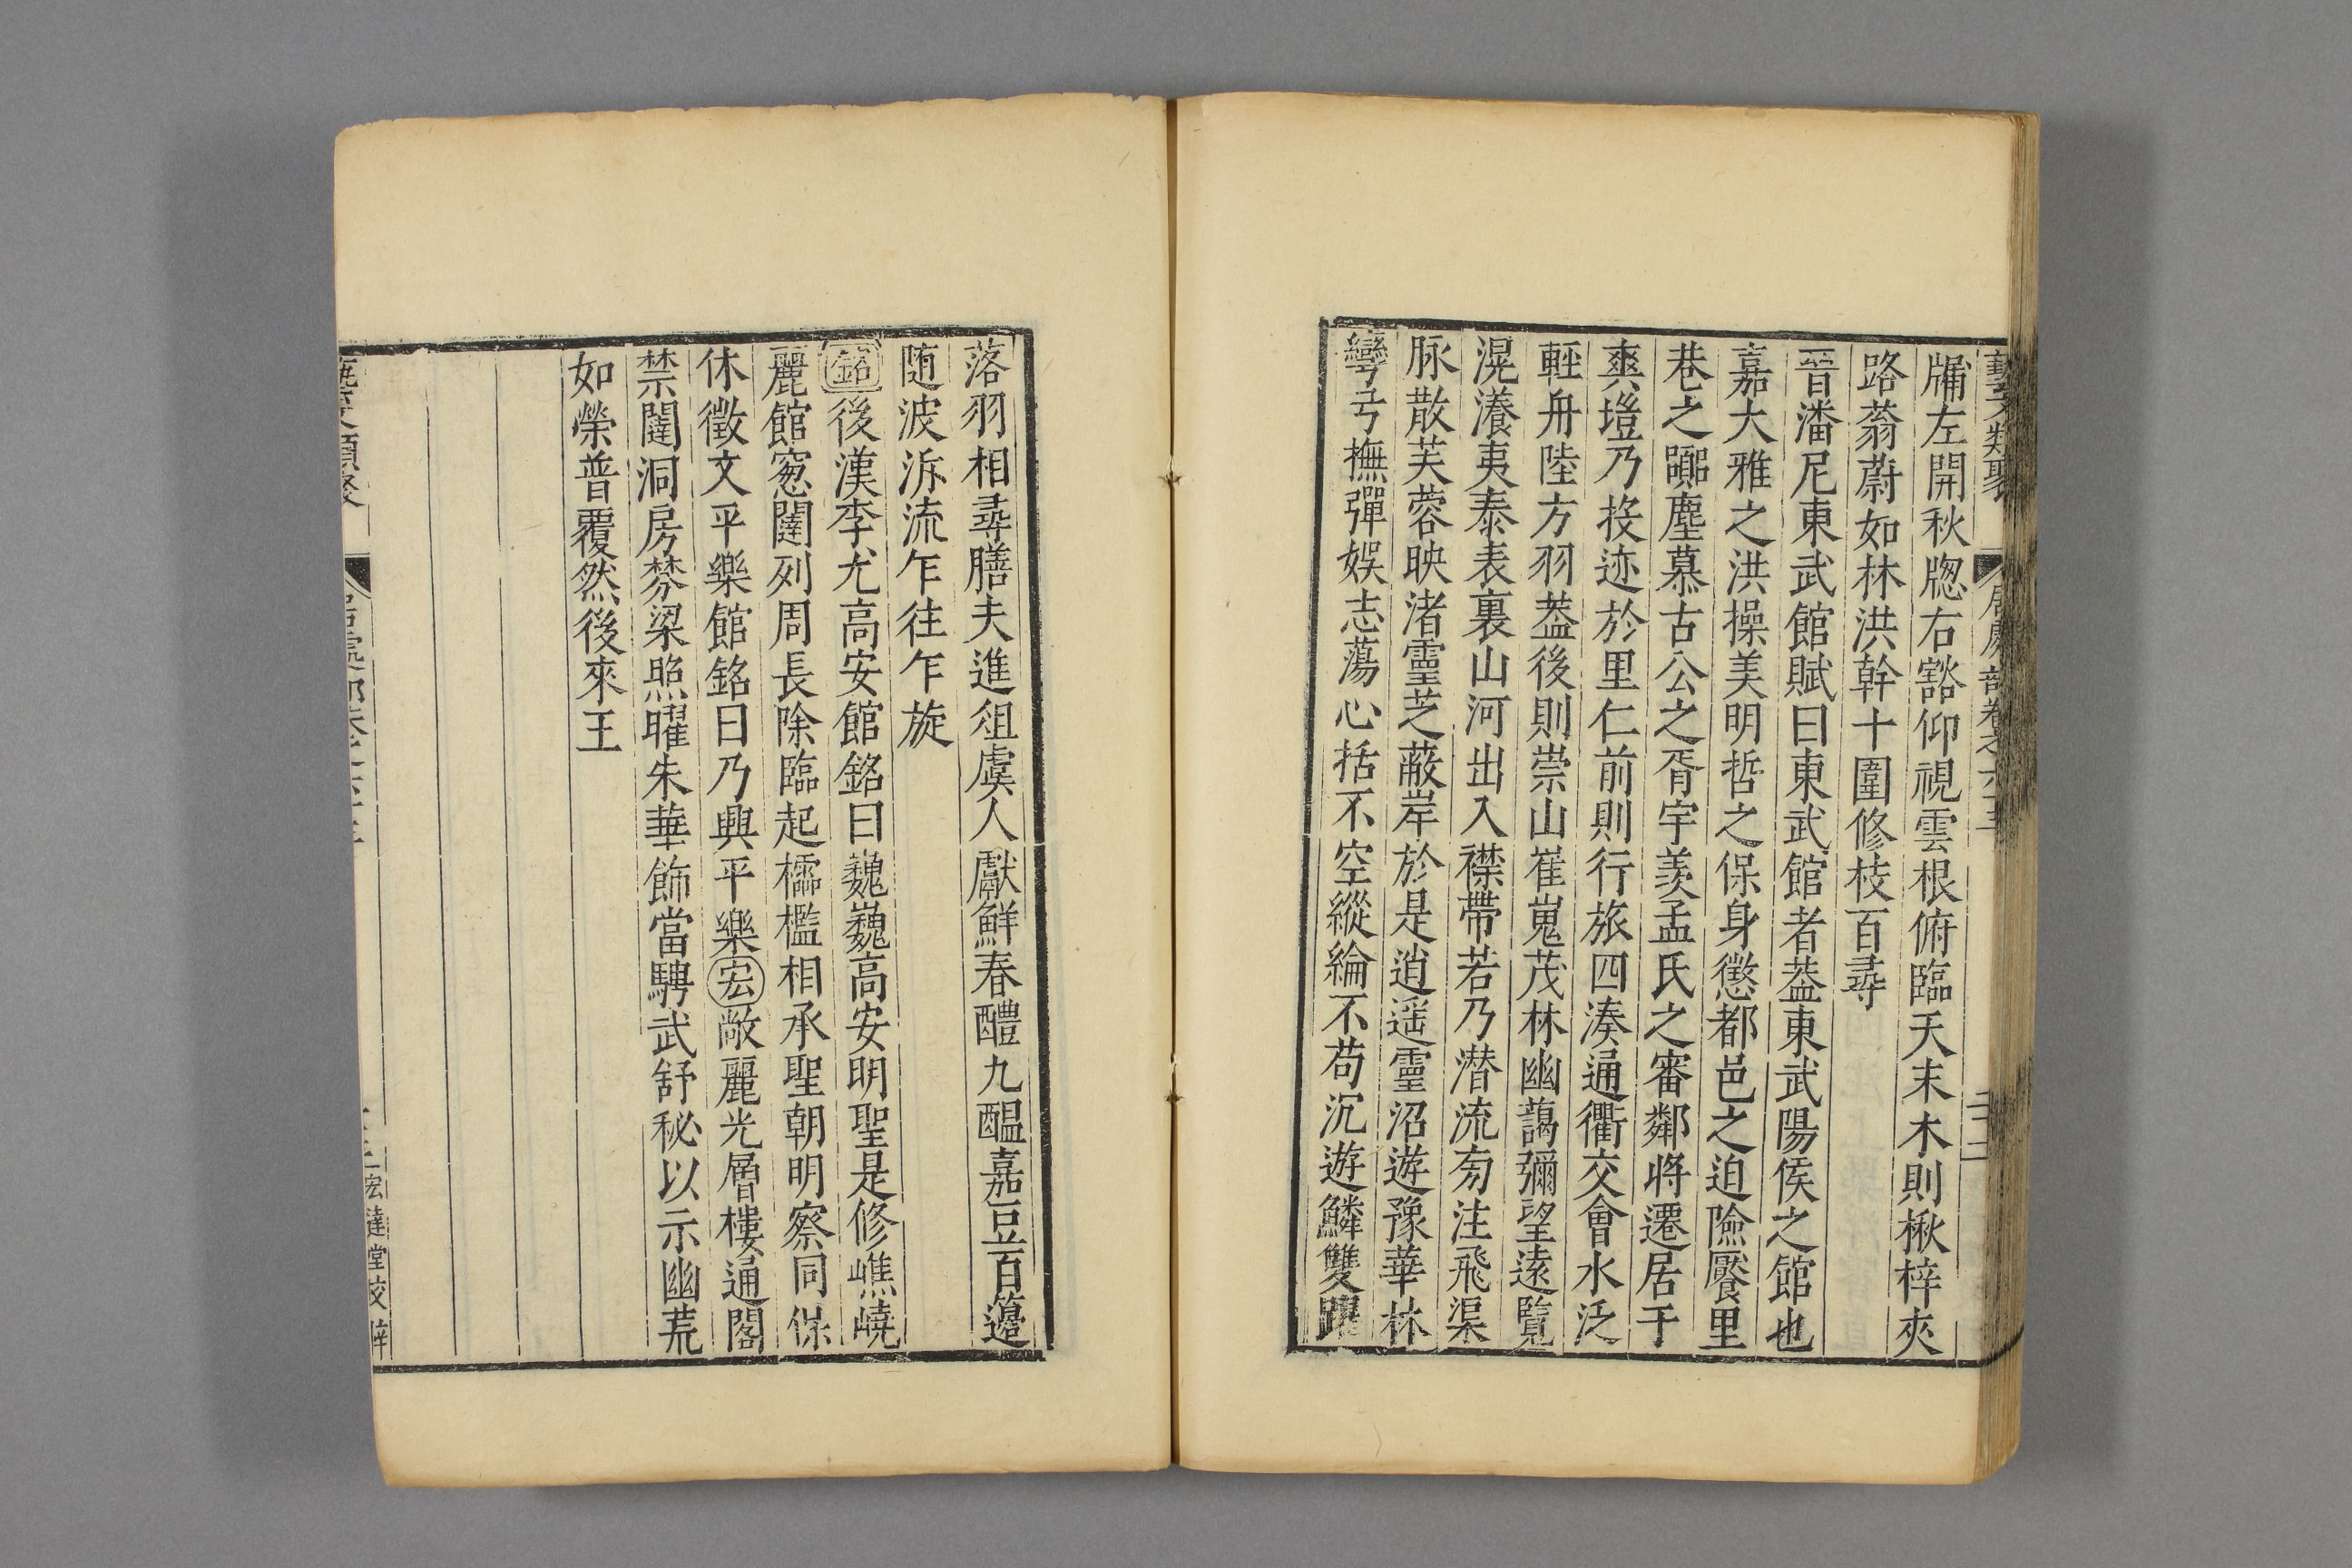 藝文類聚 居處部卷之六十三 二十二
牖左開秋牎右豁仰視雲根俯臨天末木則楸梓夾
路蓊蔚如林洪幹十圍修枝百尋
晉潘尼東武館賦曰東武館者葢東武陽侯之館也
嘉大雅之洪操美明哲之保身懲都邑之迫險饜里
巷之嚻塵慕古公之胥宇羨孟氏之審鄰將遷居于
爽塏乃投迹於里仁前則行旅四湊通衢交會水泛
輕舟陸方羽葢後則崇山崔嵬茂林幽藹彌望遠覽
滉瀁夷泰表裏山河出入襟帶若乃潜流旁注飛渠
脉散芙蓉映渚靈芝蔽岸於是逍遥靈沼遊豫華林
彎弓撫彈娛志蕩心括不空縱綸不苟沉遊鱗雙躍
落羽相尋膳夫進俎虞人獻鮮春醴九醖嘉豆百籩
随波泝流乍往乍旋
銘後漢李尤高安館銘曰巍巍高安明聖是修嶕嶢
麗館窓闥列周長除臨起櫺檻相承聖朝明察同保
休徵文平樂館銘曰乃興平樂宏敞麗光層樓通閣
禁闥洞房棼梁照曜朱華飾當騁武舒秘以示幽荒
如榮普覆然後來王
宏達堂校梓